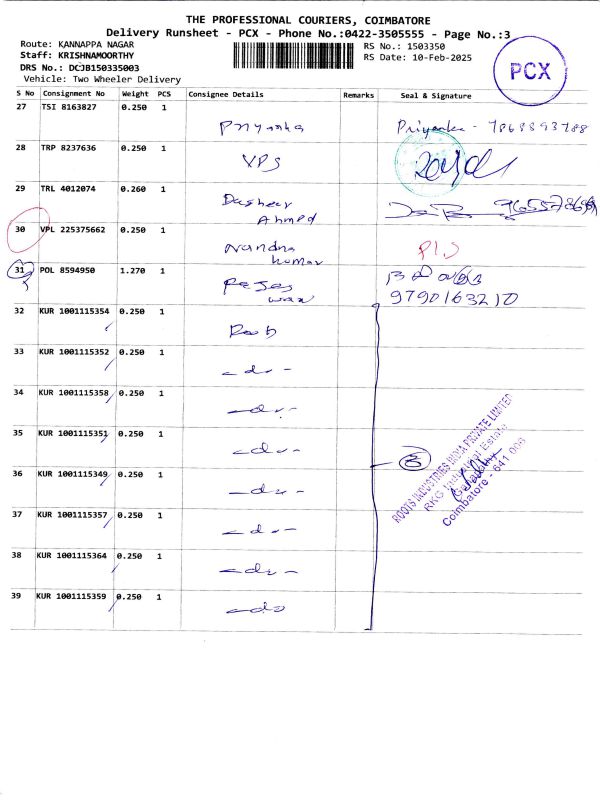 THE PROFESSIONAL COURIERS, COIMBATORE
Delivery Runsheet - PCX - Phone No.:0422-3505555 - Page No.:3
Route: KANNAPPA NAGAR
Staff: KRISHNAMOORTHY
DRS No.: DCJB150335003
Vehicle: Two Wheeler Delivery
RS No.: 1503350
RS Date: 10-Feb-2025
PCX
S No Consignment No Weight PCS Consignee Details Remarks Seal & Signature
27 TSI 8163827 0.250 1
Priyanka Priyanka - 7868893788
28 TRP 8237636 0.250 1
VPS
29 TRL 4012074 0.260 1
Ahmed
30 VPL 225375662 0.250 1
Nandha
kumar
31 POL 8594950 1.270 1
9790163210
32 KUR 1001115354 0.250 1
33 KUR 1001115352 0.250 1
-do-
34 KUR 1001115358 0.250 1
-do-
35 KUR 1001115351 0.250 1
-do-
36 KUR 1001115349 0.250 1
-do-
37 KUR 1001115357 0.250 1
-do-
38 KUR 1001115364 0.250 1
-do-
39 KUR 1001115359 0.250 1
-do
8
ROOTS INDUSTRIES INDIA PRIVATE LIMITED
RKG Industrial Estate
Coimbatore - 641 006